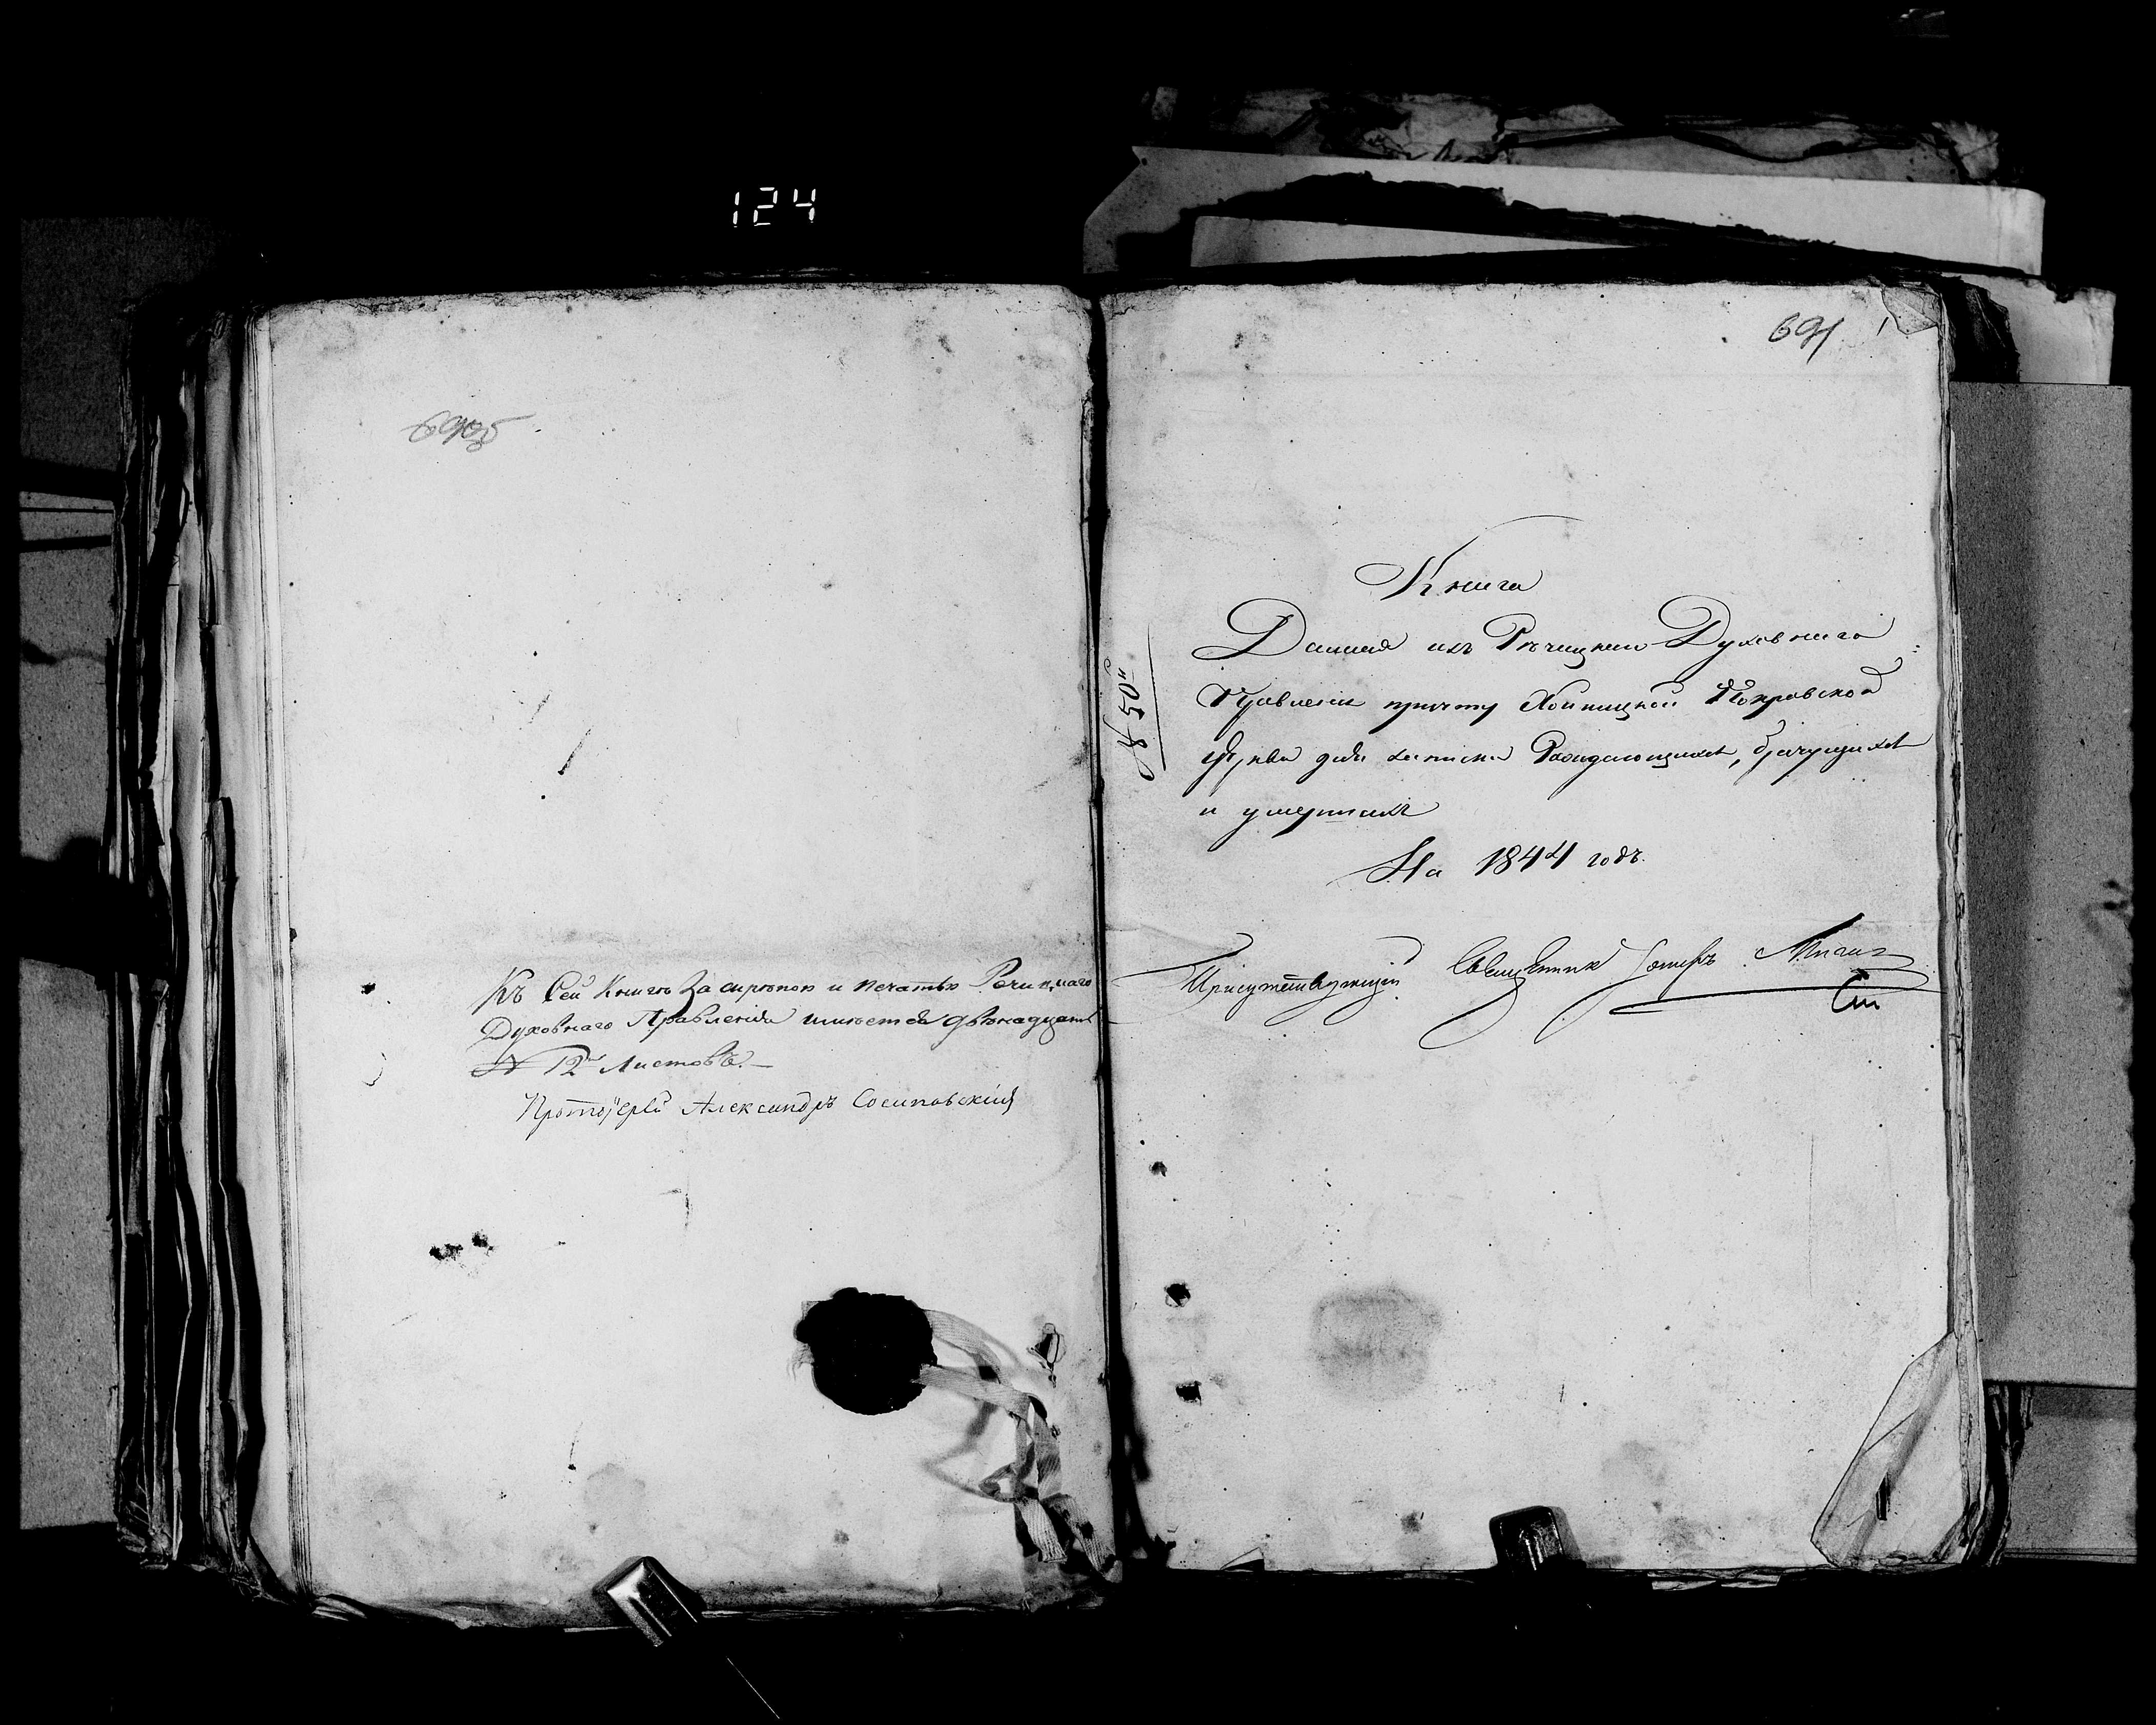 124
Къ сей книгѣ за скрѣпою и печатью Речицкаго
Духовнаго Правленія имѣется двѣнадцать
12 листовъ.
Протоіерей Александръ
691
№ 50й
Книга
Данная изъ Рѣчицкаго Духовнаго
Правленія причту Хойницкой Покровской
Церкви для записки Рождающихся, брачущихся
и умершихъ
На 1844 годъ.
Присутствующій Священник